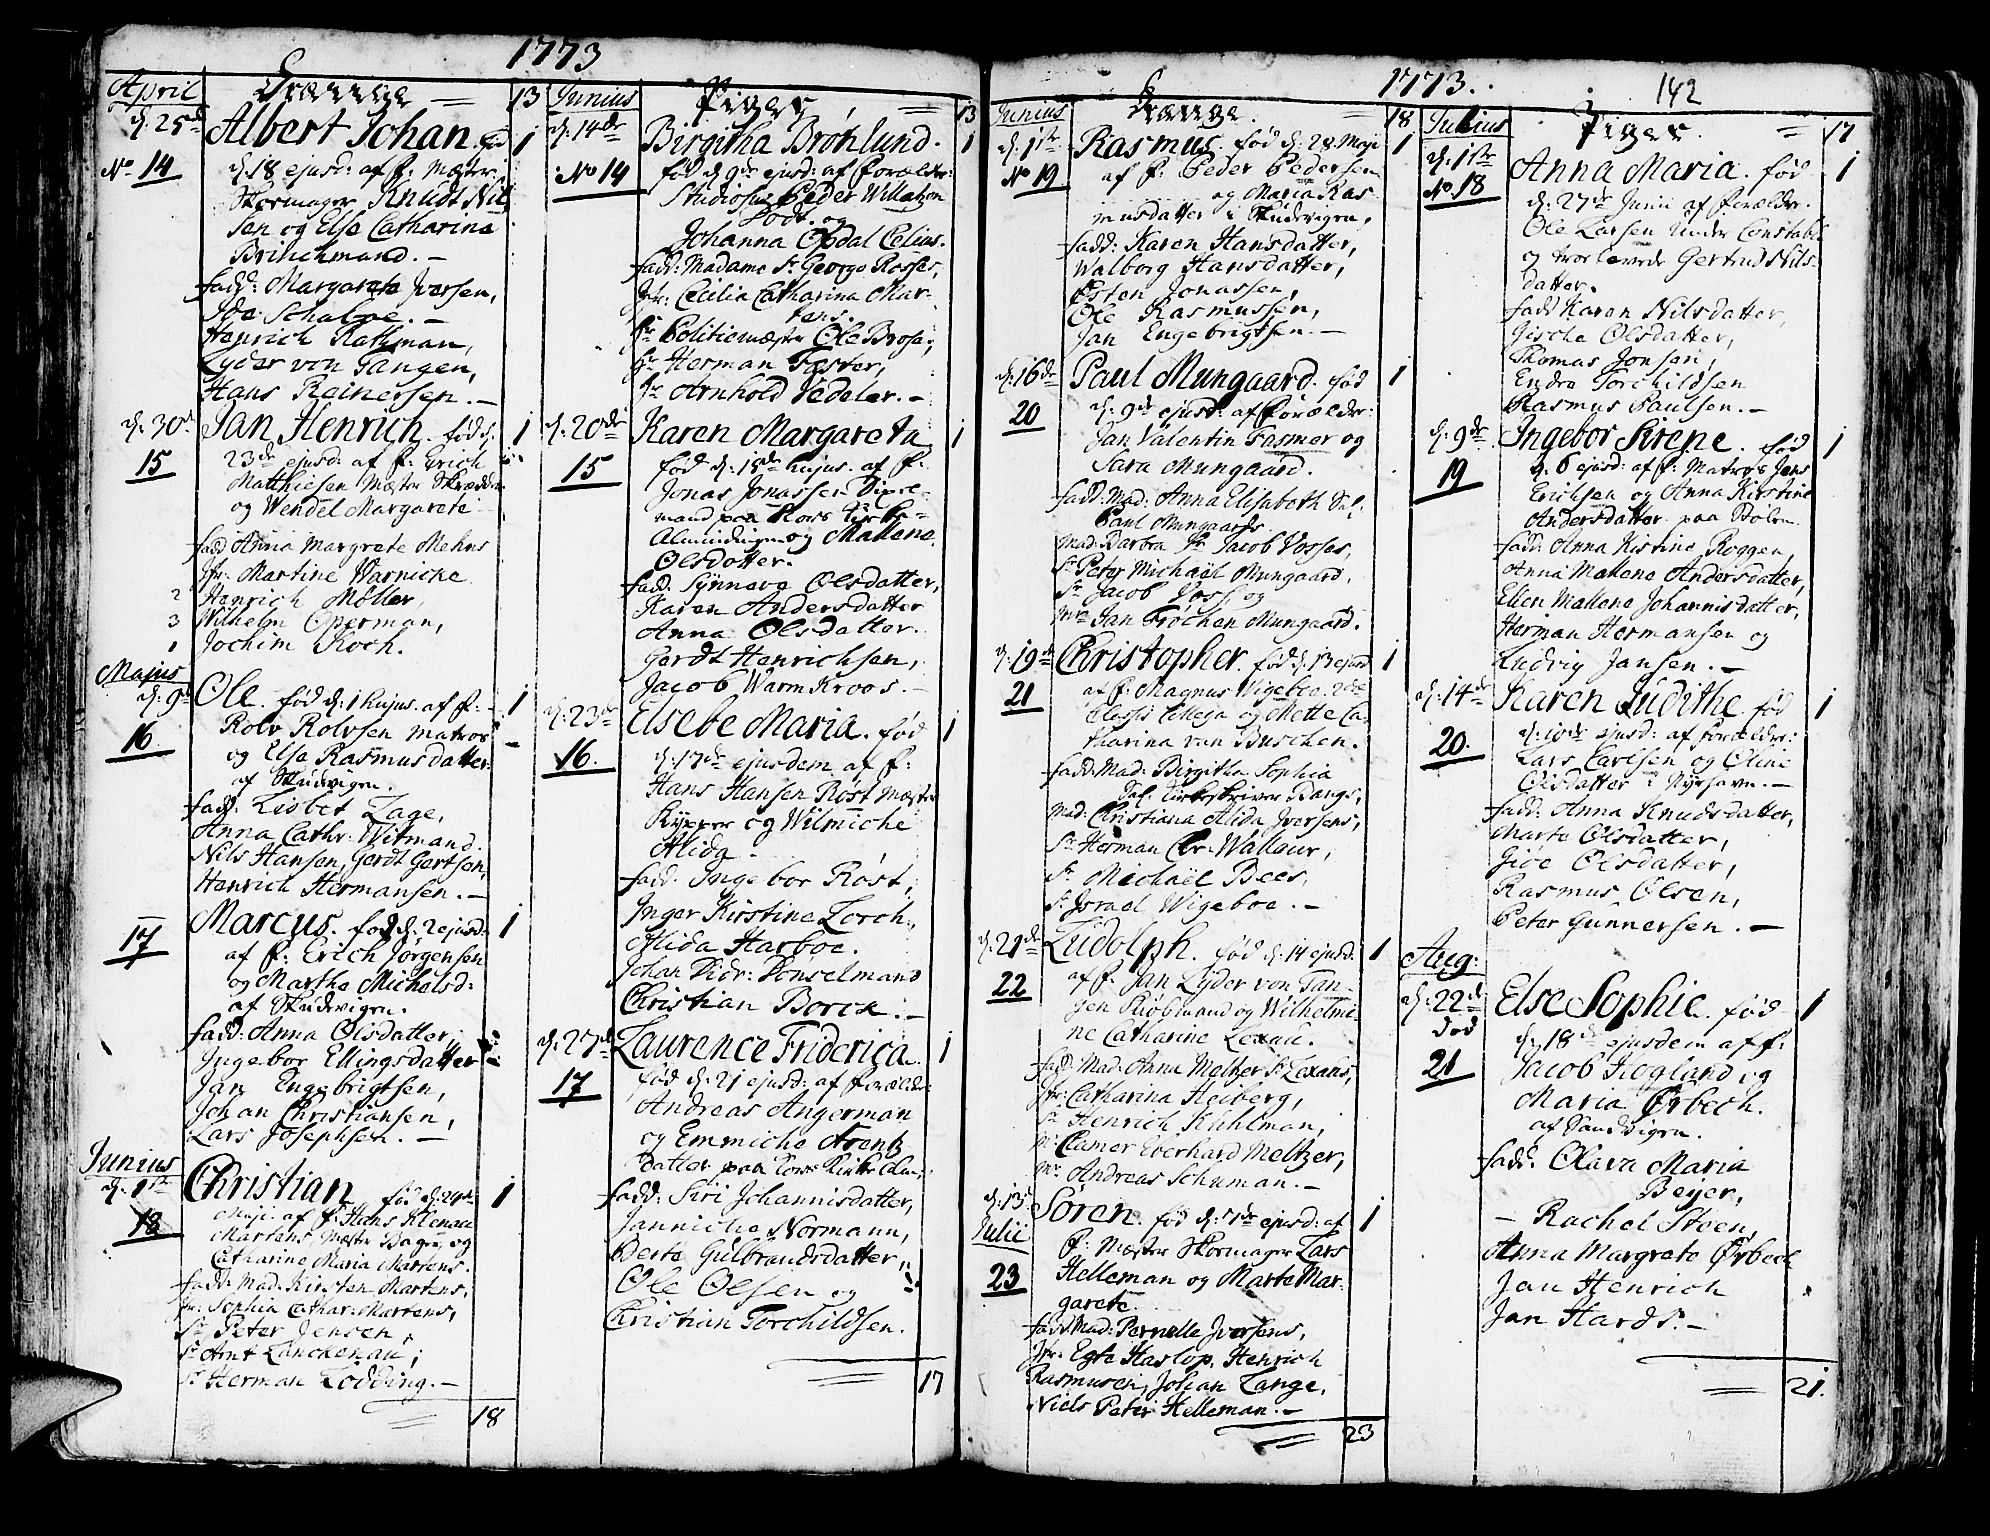 1773
April Drænge 13
d. 25de Albert Johan. fød 1
No 14 d. 18 ejusd: af f: Mester
Skormager Knudt Nil
sen og Else Catharina
Brinchmand. —
fadd: Margareta Jversen,
Henrich Rathman,
Lyder von Tangen,
Hans Reinersen. —
d. 30te Jan Henrich. fød d. 1
15 23de ejusd: af f: Erich
Matthiesen Mester Skrædder
og Wendel Margarete
fadd Anna Margrete Mehns
Jfr: Martine Warnicke
2 Henrich Møller,
3 Wilhelm Operman,
1 Jochim Koch.
Majus
d. 9de Ole. fød d. 1 hujus. af f: 1
16 Rolv Rolvsen Matros
og Else Rasmusdatter
af Skudevigen.
fadd: Lisbet Lage,
Anna Cathr: Witmand.
Nils Hansen, Gerdt Gertsen,
Henrich Hermansen. —
17 Marcus. fød d. 2 ejusd: 1
af f: Erich Jørgensen
og Marthe Michelsd:
af Skudevigen.
fadd: Anna Olsdatter,
Jngebor Ellingsdatter
Jan Engebrigtsen,
Johan Christiansen,
Lars Josephsen. —
Junius
d. 1ste Christian fød d. 29de 1
18 Maji. af f: Hans Klenau
Martens, Mester Bager, og
Catharine Maria Martens.
fadd: Mad: Kirsten Martens,
Jfr: Sophia Cathar: Martens,
Sr Peter Jensen,
Sr Arnt Lanckenau,
Sr Herman Lodding. —
18
Junius Piger 13
d. 14de Birgitha Brøhlund. 1
No 14 fød d. 9de ejusd: af Forælder:
Studiosus Peder Willatzen
Todt. og
Johanna Opdal Celius.
fadd: Madame Sr George Rosses,
Jfr: Cecilia Catharina Mar-
tens.
Hr Politiemester Ole Brose,
Hr Herman Faster,
Hr Arnhold Vedeler. —
d. 20de Karen Margareta 1
15 fød d. 15de hujus. af f:
Jonas Jonassen
mand paa Kors Kirke
Almindingen og Mallene
Olsdotter.
fadd: Synneva Olsdatter,
Karen Andersdatter
Anna Olsdatter.
Gerdt Henrichsen,
Jacob Warm Kroos. —
d. 23de Elsebe Maria. fød 1
16. d. 17de ejusdem af f:
Hans Hansen Røst Mester
Kypper og Wilmiche
Alida.
fadd: Ingebor Røst,
Inger Kirstine Lorch,
Alida Harboe.
Johan Didr: Konselmand
Christian Borck. —
d. 27de Laurence Friderica 1
17 fød d. 21 ejusd: af Forælder:
Andreas Angerman
og Emmiche Arentz
datter paa Kors Kirke Alm:
fadd: Siri Johannisdatter,
Janniche Normann,
Berte Gulbrandsdatter,
Ole Olsen og
Christian Torchildsen.
17
1773. 142
Junius Drænge. 18
d. 1ste Rasmus. fød d. 28 Maji 1
No 19 af f: Peder Pedersen
og Maria Ras-
musdatter i Skudevigen,
fadd: Karen Hansdatter,
Walborg Hansdatter,
Østen Jonassen,
Ole Rasmussen,
Jan Engebrigtsen. —
d. 16de Paul Mungaard. fød 1
20 d. 9de ejusd: af Forælder:
Jan Valentin Fasmer og
Sara Mungaard.
fadd: Mad: Anna Elisabeth Sal:
Paul Mungaards.
Mad: Barbra Sr Jacob Vosses,
Sr Peter Michaël Mungaard,
Sr Jacob Voss, og
Mr Jan Frøchen Mungaard.
d. 19de Christopher. fød d. 13 ejusd: 1
21 af f: Magnus Wigeboe 2de
Classis Collega og Mette Ca-
tharina van Buschen.
fadd: Mad: Birgitha Sophia
Sal: Kirkeskriver Bangs,
Mad: Christiana Alida Jversens,
Sr Herman Chr: Walleur,
Sr Michaël Bees,
Sr Jsrael Wigeboe. —
d. 21de Ludolph. fød d. 14 ejusd: 1
22 af f: Jan Lyder von Tan-
gen Kiøbmand og Wilhelmi-
ne Catharine Lexau.
fadd: Mad: Anna Meltzer Sr Lexaus,
Jfr: Catharina Heiberg,
Sr Henrich Kuhlman,
Mr Clamer Eberhard Meltzer,
Mr Andreas Schuman. —
d. 13de Søren. fød d. 7de ejusd: af 1
Julii f: Mester Skormager Lars
23 Helleman og Marte Mar-
garete.
fadd: Mad: Pernelle Jversens,
Jfr: Egte Haslop, Henrich
Rasmusen, Johan Lange,
Niels Peter Helleman. —
23
Julius Piger. 17
d. 1ste Anna Maria. fød 1
No. 18 d. 27de Junii af Forælder.
Ole Larsen Under Constabel
og troelevede Gertrud Nils-
datter.
fadd Karen Nilsdatter,
Gische Olsdatter,
Thomas Jonsen,
Endre Torchildsen
Rasmus Paulsen. —
d. 9de Ingebor Sirene. fød 1
19 d. 6 ejusd: af f: Matros Jens
Erichsen og Anna Kirstine
Andersdatter paa Stølen
fadd: Anna Kistine Roggen,
Anna Mallene Andersdatter,
Ellen Mallene Johannisdatter,
Herman Hermansen og
Ludvig Jansen. —
d. 14de Karen Judithe. fød 1
20. d. 10de ejusd: af forælder:
Lars Carlsen og Oline
Olsdatter i Nyehavn. —
fadd: Anna Knudsdatter,
Marte Olsdatter,
Giøe Olsdatter,
Rasmus Olsen,
Peter Gunnersen. —
Aug:
d. 22de Else Sophie. fød 1
død d. 18de ejusdem af f:
21 Jacob Hogland og
Maria Ørbech.
af Sandvigen.
fadd: Olava Maria
Beyer,
— Rachel Steen,
Anna Margrete Ørbech
Jan Henrich
Jan Hards. —
21.